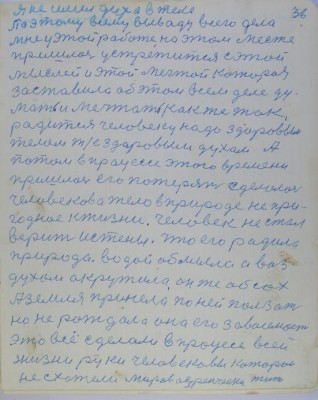 я не имел духа в теле
36
Поэтому всему выводу всего дела
мне у этой работе на этом месте
пришлося устретится с этой
мыслей и этой мечтой которая
заставила об этом всем деле ду-
мать и мечтать как же так,
родится человеку надо здоровым
телом т/к здоровым духом А
потом в процессе этого времени
пришлося его потерять сделалося
человеково тело в природе не при-
годное к жизни. человек не стал
верит истены. что его родила
природа. водой обмыла а воз
духом окружила, он же обсох
А земля приняла по ней ползат
но не рождала она его зависимост
это всё сделали в процессе всей
жизни руки человековы которое
не схотели
жить